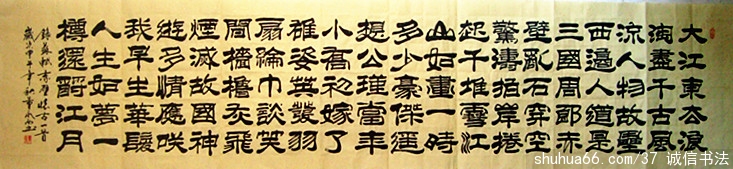 大江東去浪
淘盡千古風
流人物故壘
西邊人道是
三國周郎赤
壁亂石穿空
驚濤拍岸捲
起千堆雪江
山如畫一時
多少豪傑遥
想公瑾當年
小喬初嫁了
雄姿英發羽
扇綸巾談笑
間檣櫓灰飛
煙滅故國神
遊多情應咲
我早生華髮
人生如夢一
樽還酹江月
錄蘇軾赤壁懷古一首
歲次甲午年秋
shuhua66.com/37 诚信书法